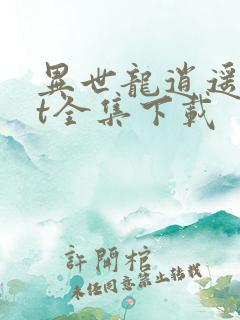 異世龍逍遥
t全集下載
許開棺
未任同意禁止轉載